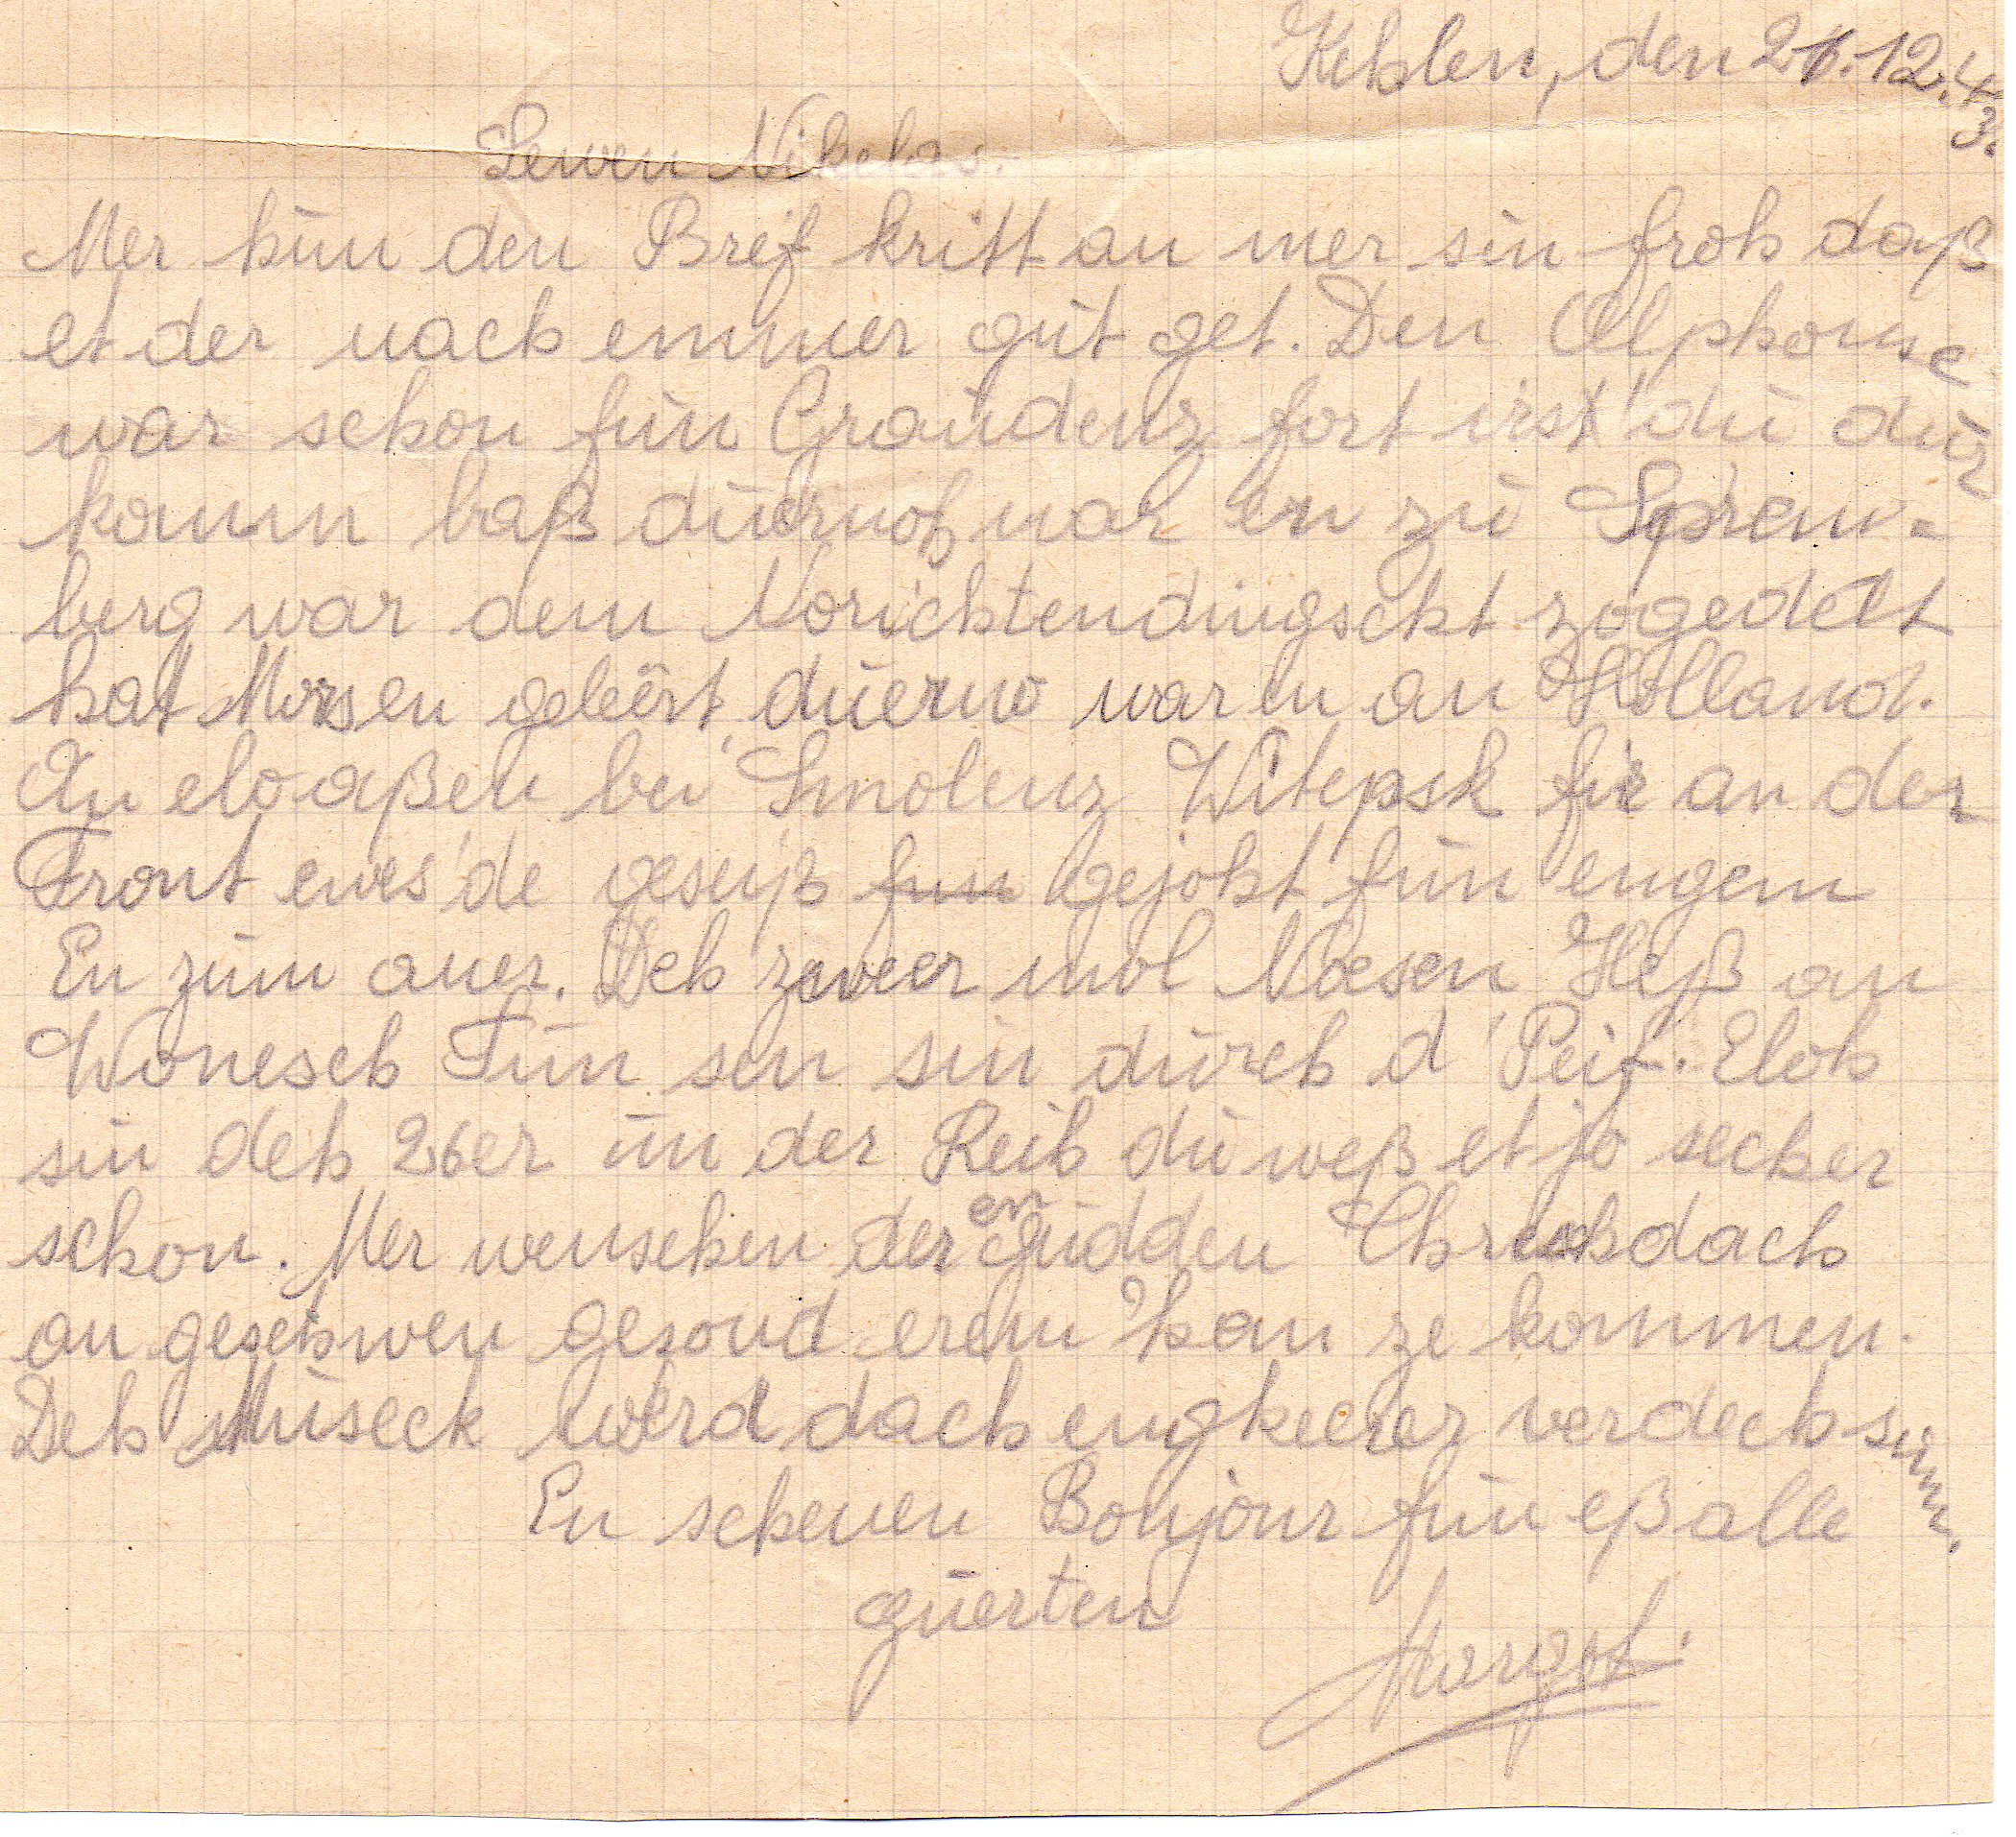 Kehlen, den 21.12.43.
Lewen Nikolas.
Mer hun den Brêf kritt an mer sin froh daß
et der nach emmer gût get. Den Alphonse
war schon fun Graudenz fort irst du dur
komm baß duernoh war en zu Sprem-
berg war dem Norichtendingscht zogedelt
hat Morsen geleért, duerno war en an Holland.
An elo aßen bei Smolenz Witepsk fir an der
Front ewes de geseiß gejoht fun engem
En zum aner. Deh zweer mol Nosen Heß an
Wonesch Tun sen sin durch d'Peif. Eloh
sin deh 26er un der Reih du weß et jo secker
schon. Mer wenschen der en gudden Chreschdach
an geschwen gesond erem han ze kommen.
Deh Museck werd dach engkeerez verdech sinn.
En schenen Bonjour fun eß alle
guerten
Margot.